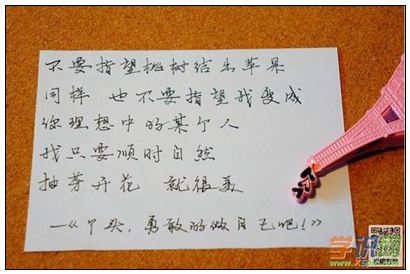 不要指望桃树结出苹果
同样 也不要指望我变成
你理想中的某个人
我只要顺时自然
抽芽开花 就很美
—《丫头,勇敢的做自己吧!》
学识